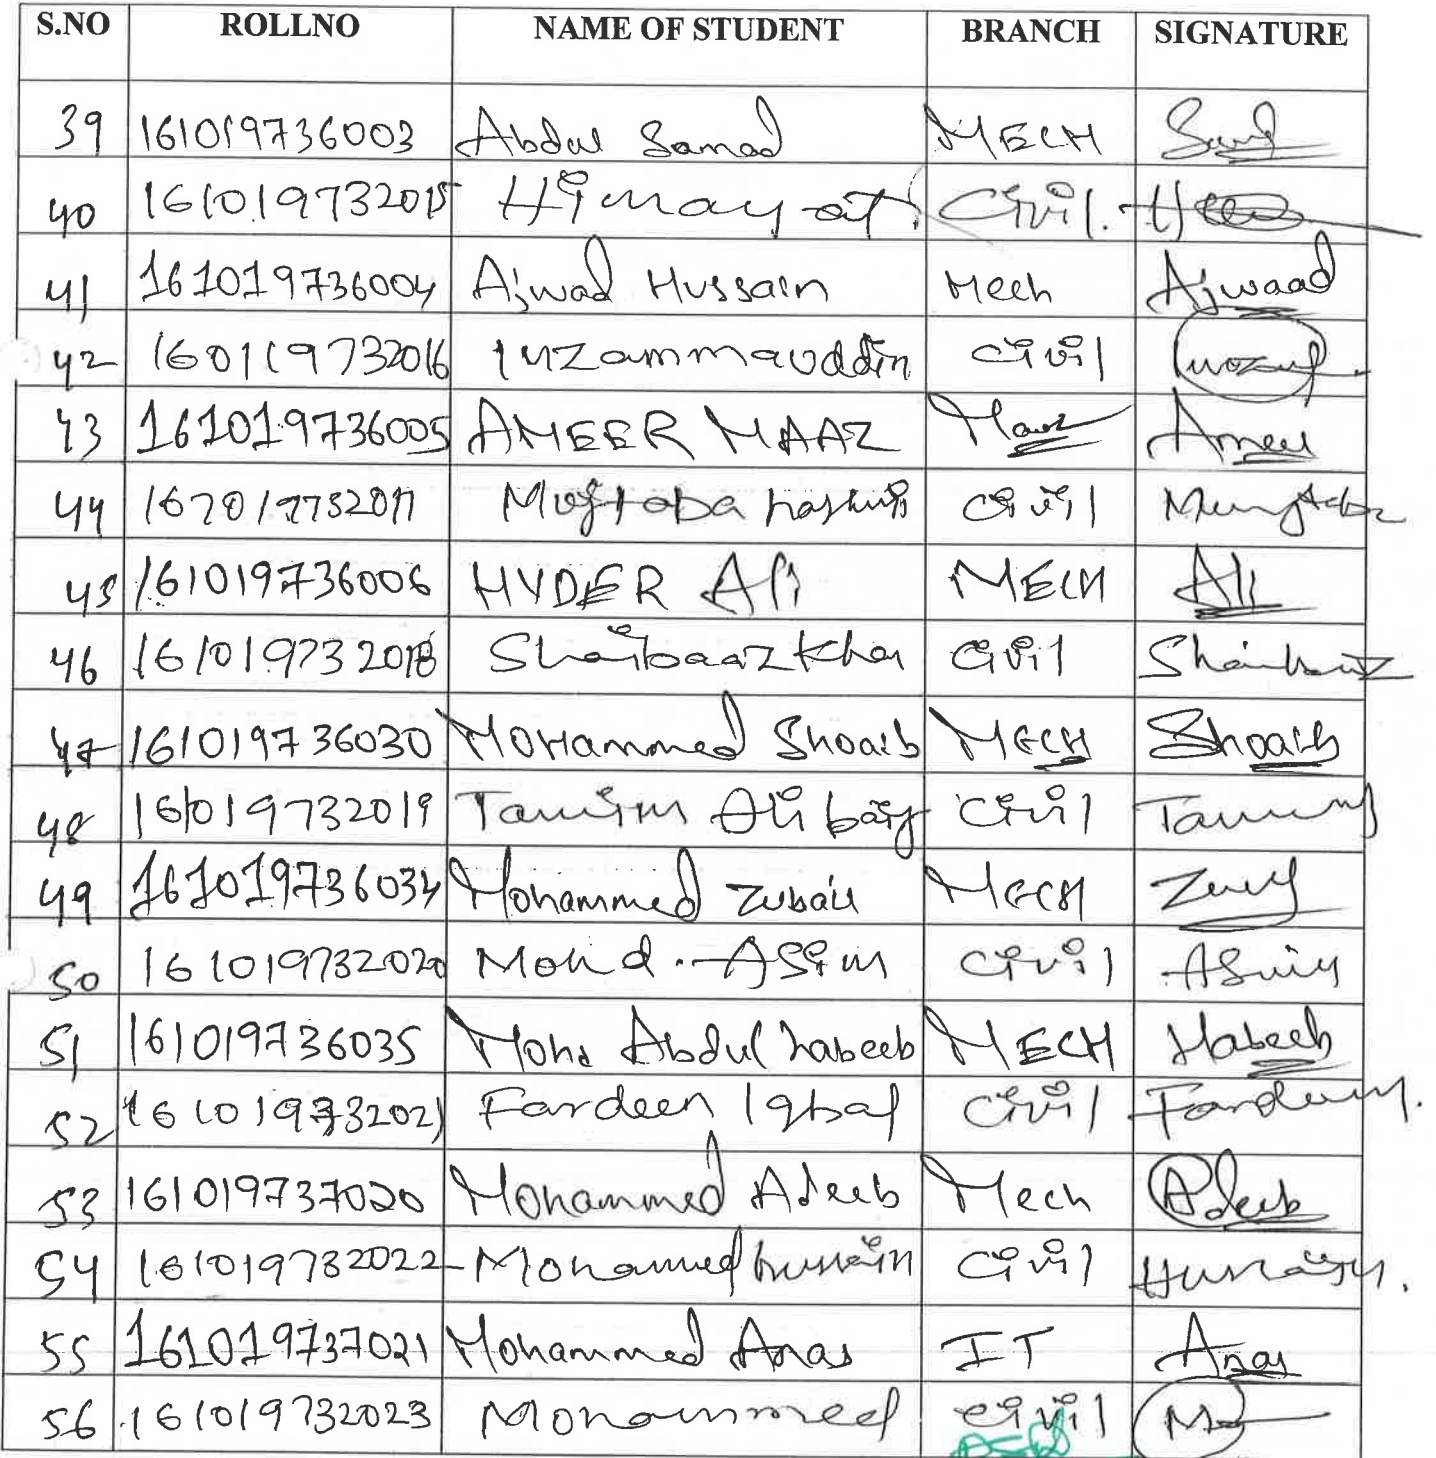 S.NO ROLLNO NAME OF STUDENT BRANCH SIGNATURE
39 161019736003 Abdul Samad MECH
40 161019732015 Himayat Civil.
41 161019736004 Ajwad Hussain Mech Ajwaad
42 160119732016 Civil
43 161019736005 AMEER MAAZ Ameer
44 Mujtaba hashmi Civil
45 161019736006 HYDER Ali MECH Ali
46 161019732018 Shaibaaz khan Civil
47 161019736030 Mohammed Shoaib MECH Shoaib
48 161019732019 Ali baig Civil
49 161019736034 Mohammed Zubair MECH
50 161019732020 Mohd. Asim Civil Asim
51 161019736035 Mohd Abdul habeeb MECH Habeeb
52 161019732021 Fardeen Iqbal Civil Fardeen
53 161019737020 Mohammed Adeeb Mech Adeeb
54 161019732022 Mohammed hussain Civil Hussain.
55 161019737021 Mohammed Anas IT Anas
56 161019732023 Mohammed Civil